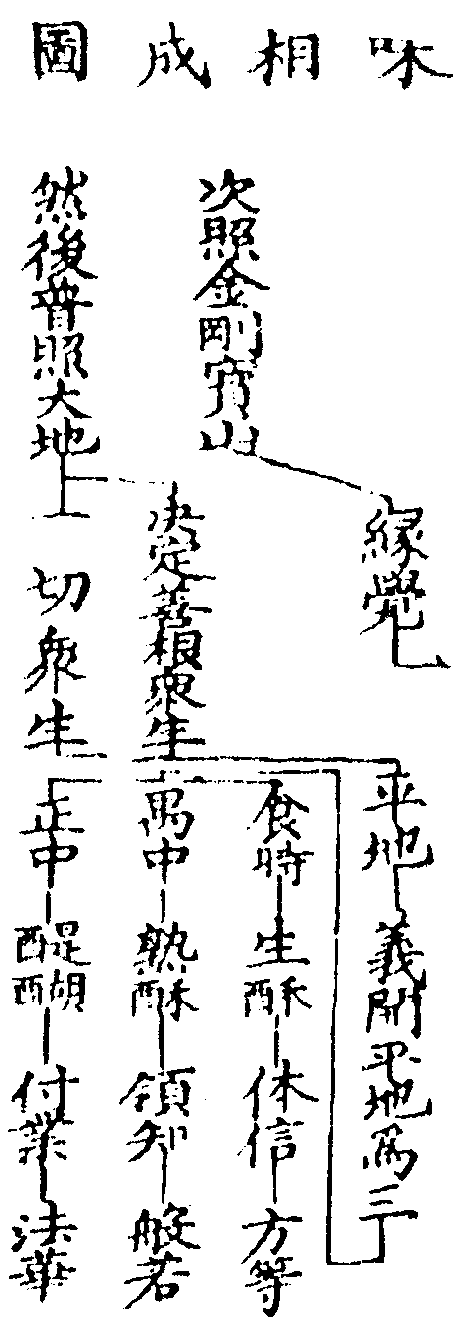 味相成圖
次照金剛寶山
緣覺
然後普照大地
決定善根眾生
一切眾生
平地
義開平地為三
食時
生酥
体信
方等
禺中
熟酥
領知
般若
正中
醍醐
付業
法華